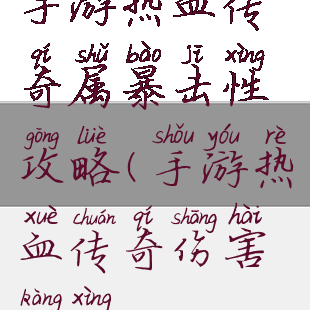 手游热血传
qí shǔ bào jī xìng
奇属暴击性
gōng lüè shǒu yóu rè
攻略(手游热
xuè chuán qí shāng hài
血传奇伤害
kàng xìng